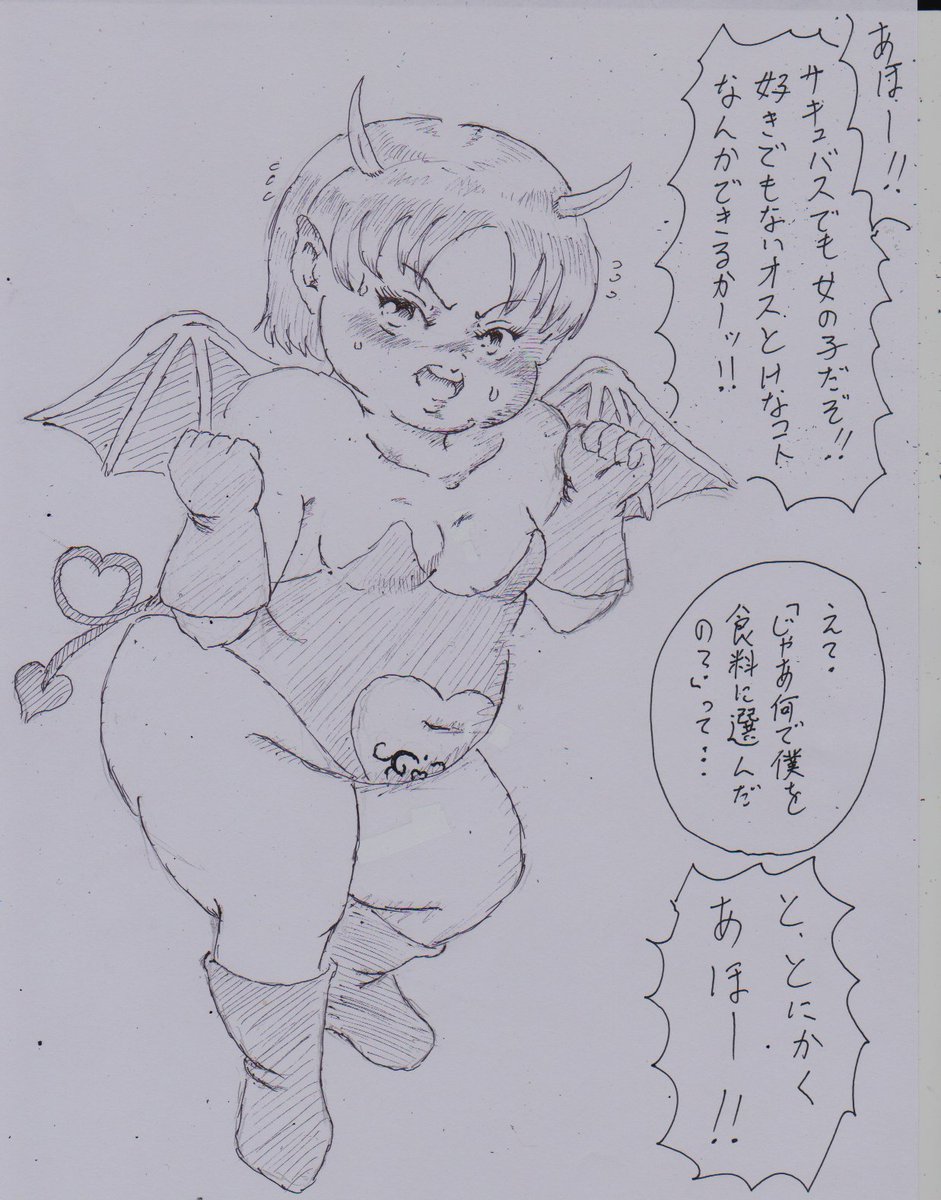 あほー!!
サキュバスでも女の子だぞ!!
好きでもないオスとHなコト
なんかできるかーッ!!
えて・
「じゃあ何で僕を
食料に選んだ
のて〟」って・・・
と、とにかく
あほー!!